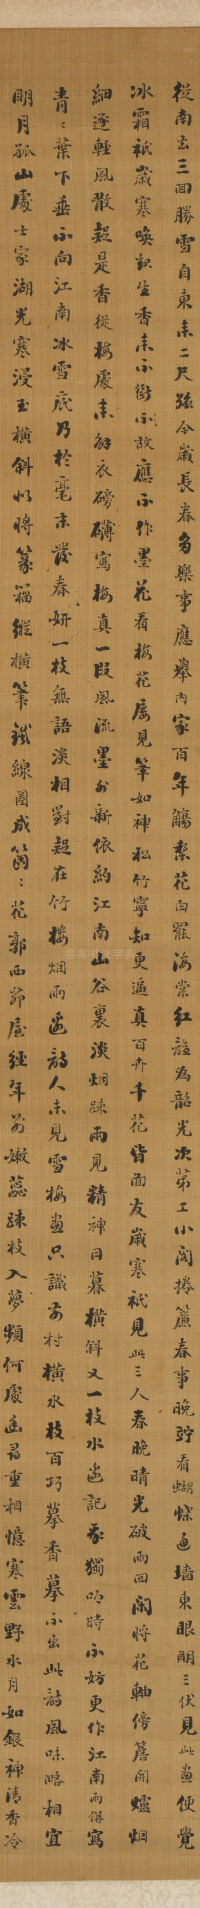 從南去三回勝雪自東來二尺強今歲長春多樂事應舉內家百年觴梨花白罷海棠紅話為韶光次第工小閣捲簾春事晚貯看蝴蝶過墻東眼明三伏見此畫便覺
冰霜祇歲寒喚起生香來不斷不故應不作墨花看梅花屢見筆如神松竹寧知更逼真百卉千花皆面友歲寒祇見此三人春晚晴光破雨回閑將花軸傍簷開爐烟
細逐輕風散疑是香從梅處來解衣磅礴寫梅真一段風流墨外新依約江南山谷裏淡烟踈雨見精神日暮橫斜又一枝水邊記我獨吟時不妨更作江南雨併寫
青々葉下垂不向江南冰雪底乃於毫末發春妍一枝無語淡相對疑在竹樓烟雨邊詩人未見雪梅畫只識前村橫水枝百巧摹香摹不出此詩風味略相宜
明月孤山處士家湖光寒浸玉橫斜似將篆籀縱橫筆鐵線圈成箇々花郭西茆屋經年前嫩蕊踈枝入夢頻何處幽尋重相憶寒雲野水月如銀神清香冷